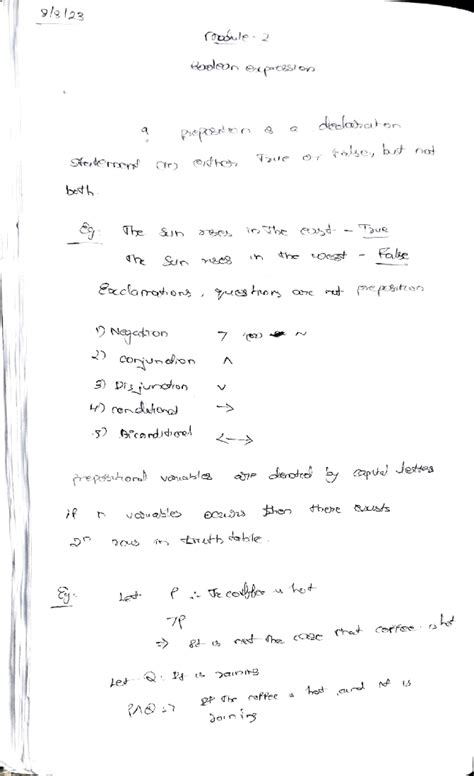 8/8/23
Module - 2
Boolean expression
A preposition is a declaration
Statement (or) either True or False, but not
both.
Eg: The Sun rises in the east - True
The Sun rises in the west - False
Exclamations, questions are not preposition
1) Negation ¬ (or) ~
2) conjunction ∧
3) Disjunction ∨
4) conditional →
5) Biconditional <-->
prepositional variables are denoted by capital letters
if n variables occurs then there exists
2ⁿ rows in truth table.
Eg: Let P : The coffee is hot
¬P
⇒ It is not the case that coffee is hot
Let Q: It is raining
P∧Q ⇒ If the coffee is hot and it is
raining